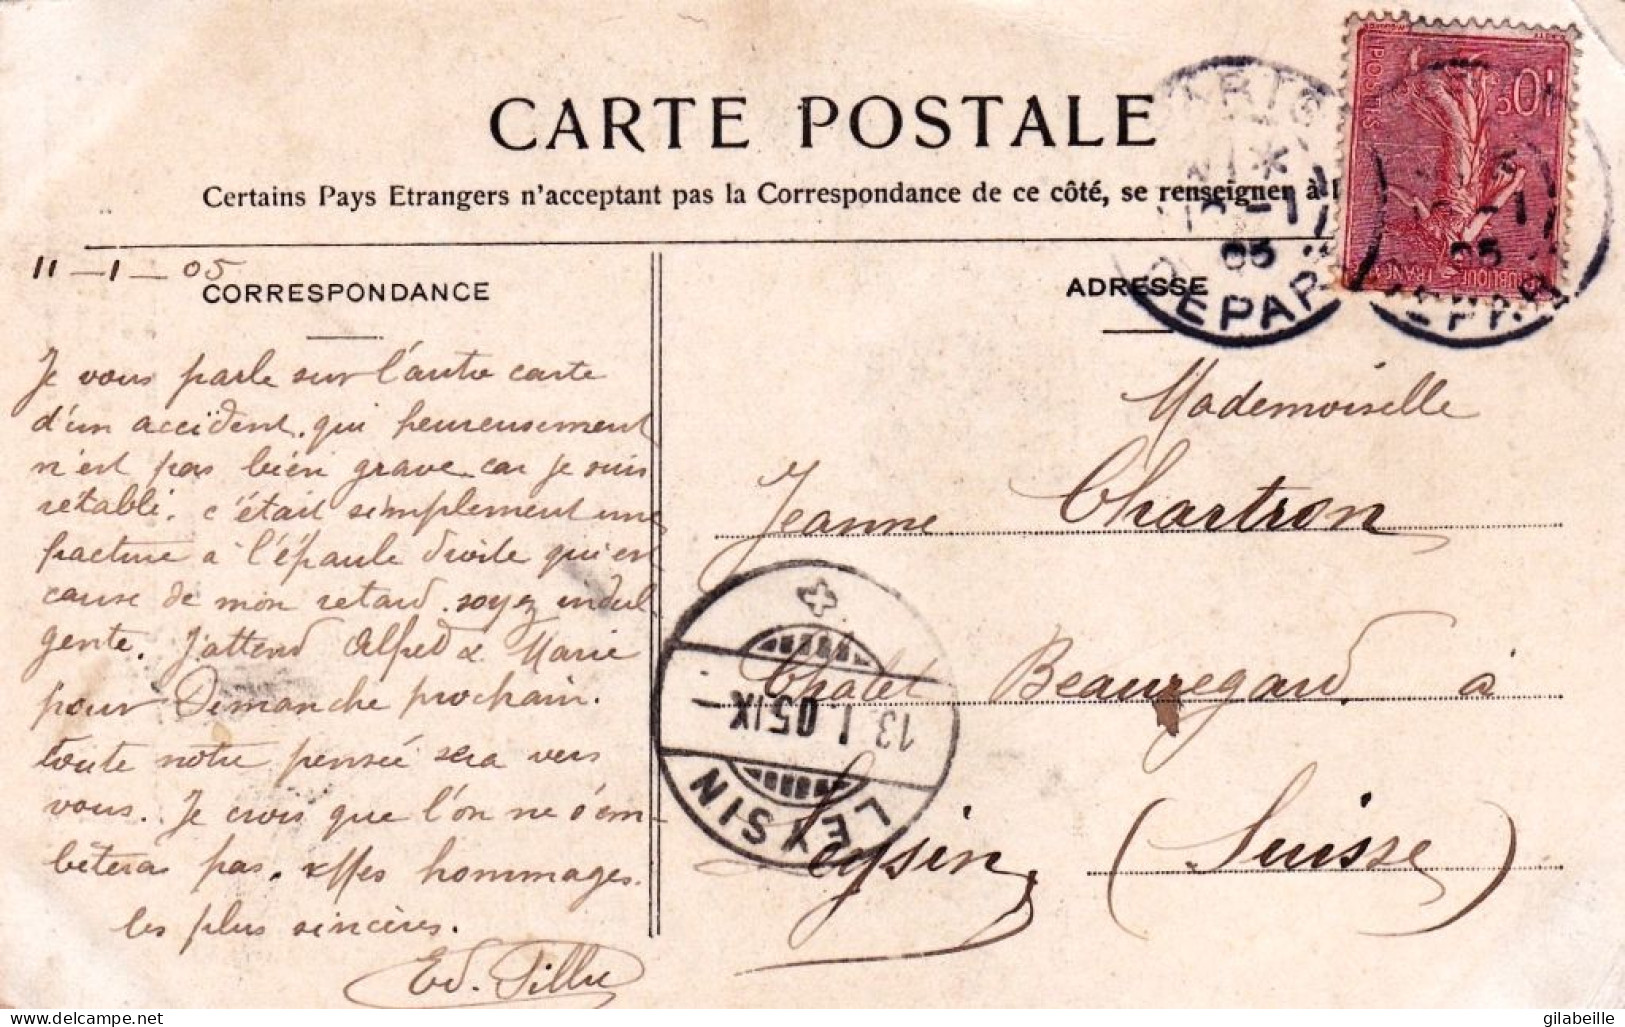 CARTE POSTALE
Certains Pays Etrangers n'acceptant pas la Correspondance de ce côté, se renseigner à l
11 - 1 - 05
CORRESPONDANCE
ADRESSE
Je vous parle sur l'autre carte
d'un accident, qui heureusement
n'est pas bien grave car je suis
rétabli. c'était simplement une
fracture à l'épaule droite qui est
cause de mon retard. soyez indul
gente. J'attend Alfred & Marie
pour Dimanche prochain.
toute notre pensée sera vers
vous. Je crois que l'on ne s'em-
bêtera pas. hommages
les plus sincères.
Ed. Pillu
Mademoiselle
Jeanne Chartron
Chalet Beauregard à
Leysin (Suisse)
PARIS
05
DEPART
POSTES
10c
REPUBLIQUE FRANÇAISE
05
DEPART
13.I.05.IX
LEYSIN
delcampe.net
gilabeille